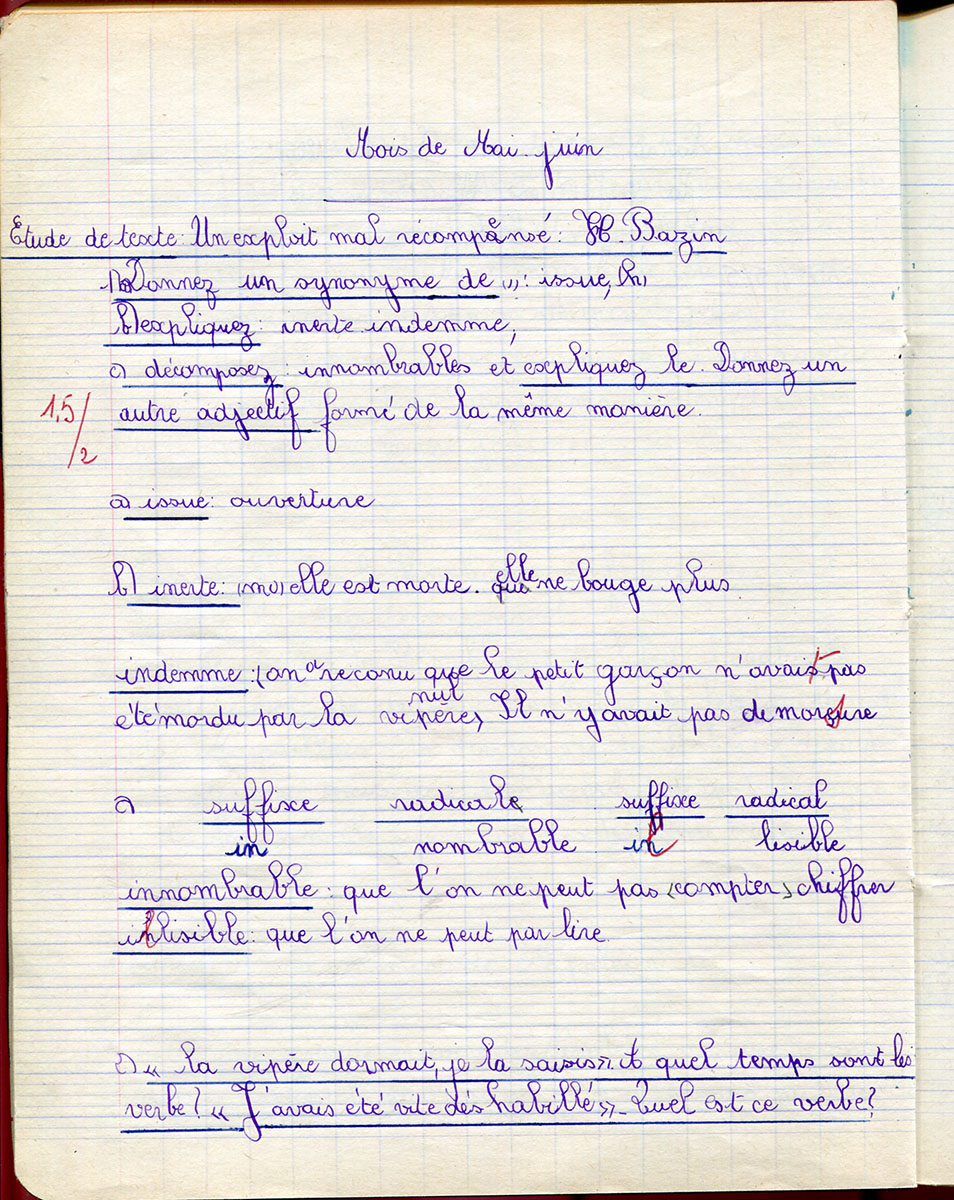 Mois de Mai. juin
Etude de texte: Un exploit mal récompensé: H. Bazin
1) a) Donnez un synonyme de : issue,
b) expliquez: inerte. indemme,
c) décomposez: innombrables et expliquez le. Donnez un
1,5/2 autre adjectif formé de la même manière.
a) issue: ouverture
b) inerte: (mo) elle est morte. elle ne bouge plus.
indemme: (on a reconu que le petit garçon n'avait pas
nut
été mordu par la vipère, Il n'y avait pas de morsure
c) suffixe radicale suffixe radical
in nombrable in lisible
innombrable: que l'on ne peut pas (compter) chiffrer
inlisible: que l'on ne peut par lire.
2) « la vipère dormait, je la saisis». A quel temps sont les
verbe? « J'avais été vite déshabillé». Quel est ce verbe?